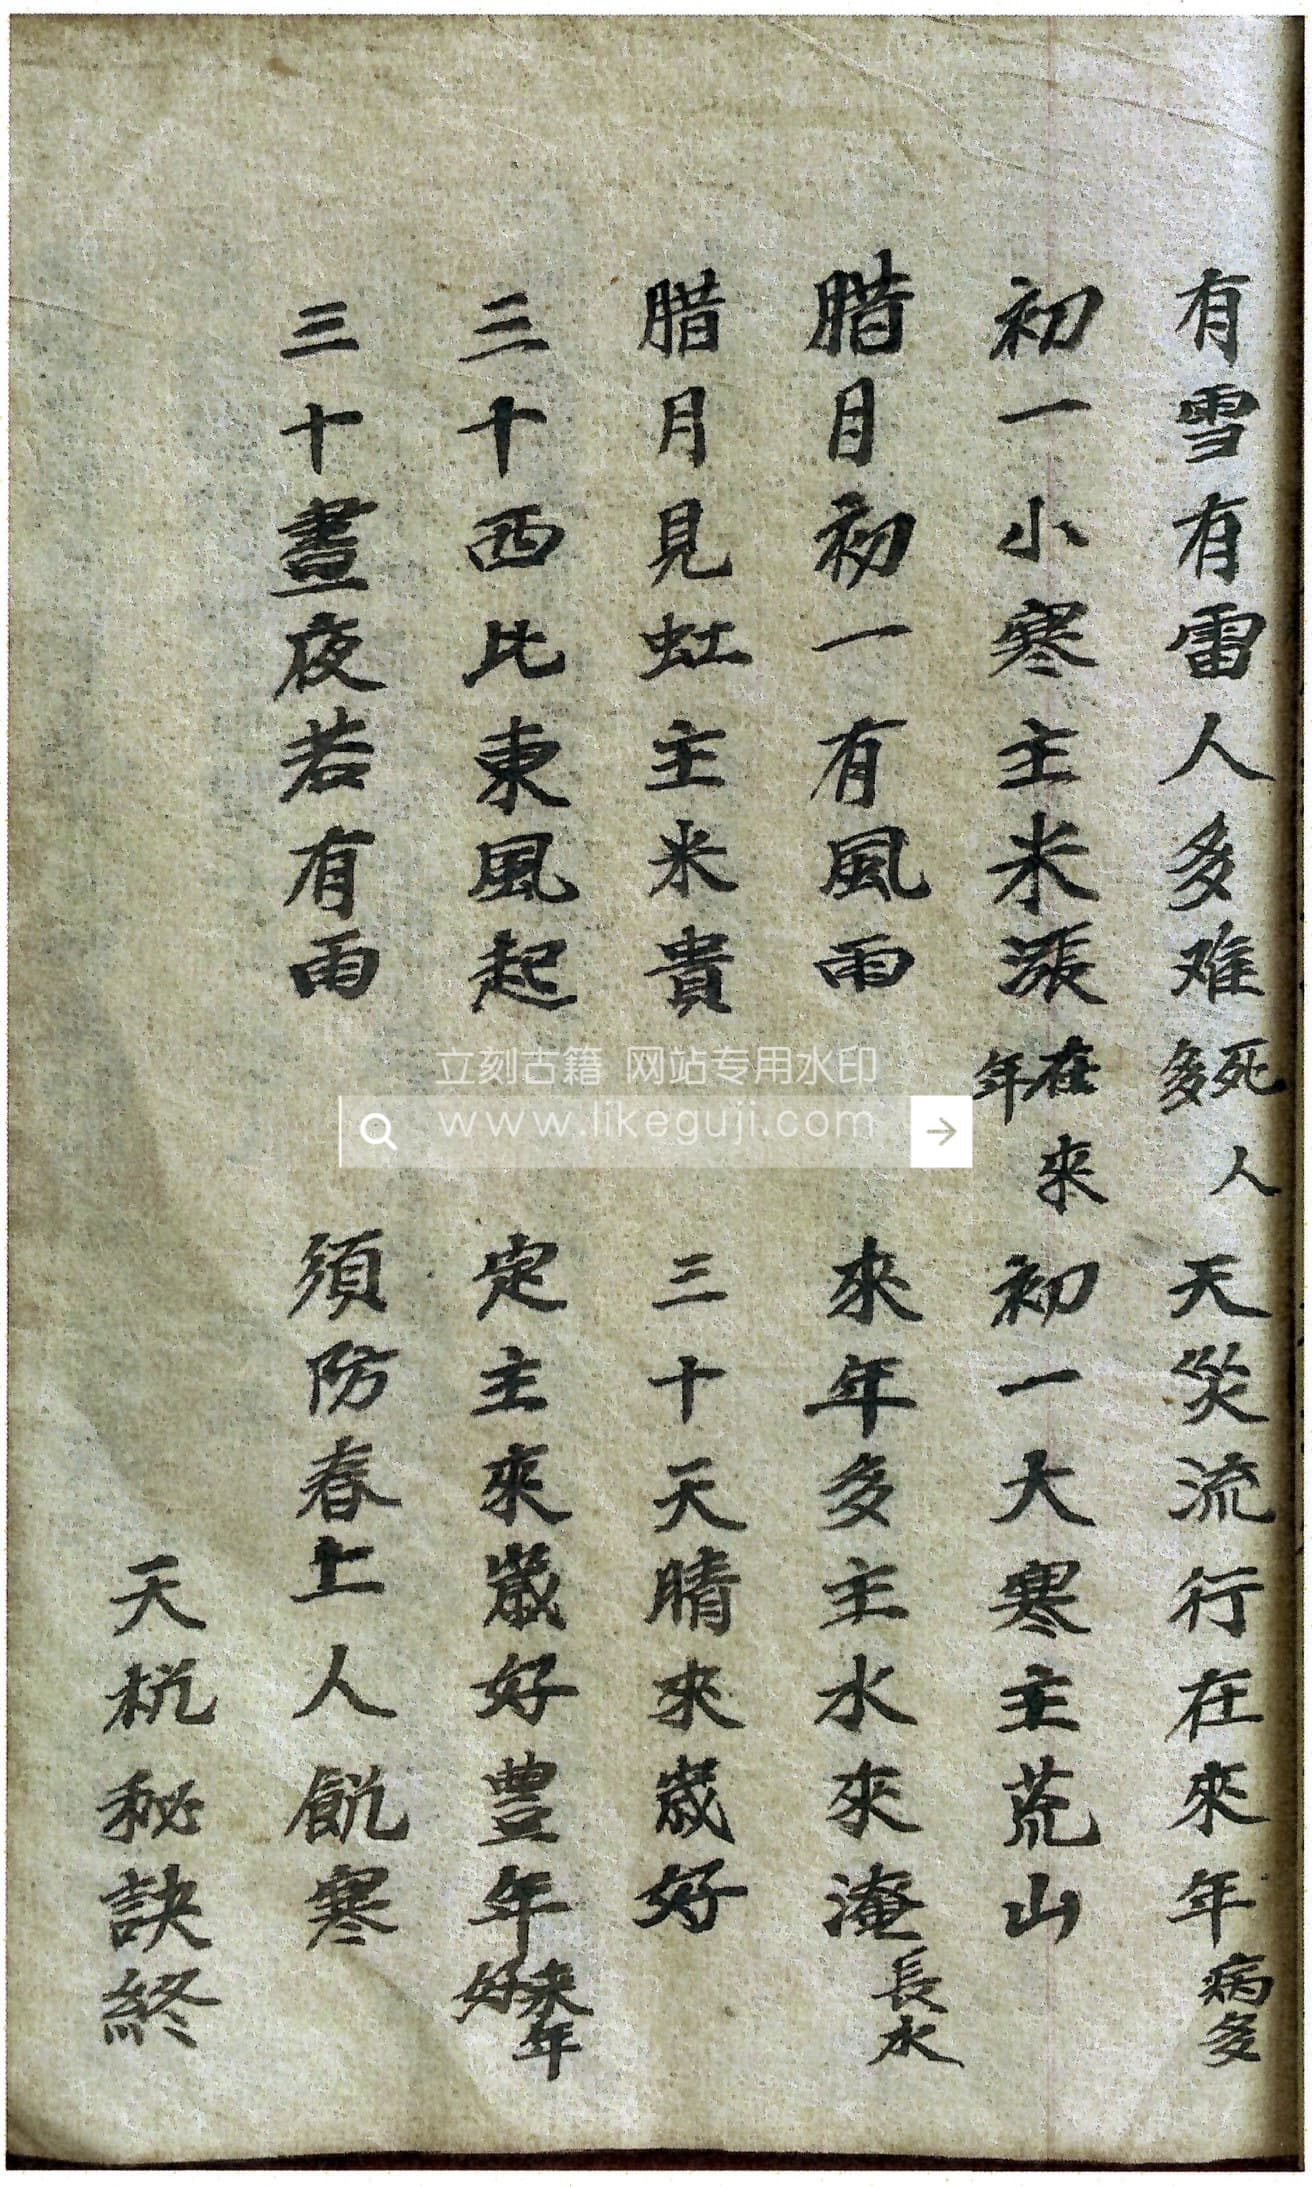 有雪有雷人多难死人多 天災流行在來年病多
初一小寒主米漲在來年 初一大寒主荒山
腊月初一有風雨 來年多主水來淹長水
腊月見虹主米貴 三十天晴來歲好
三十西比東風起 定主來歲好豊年來年好
三十晝夜若有雨 須防春上人飢寒
天机秘訣終
立刻古籍 网站专用水印
www.likeguji.com